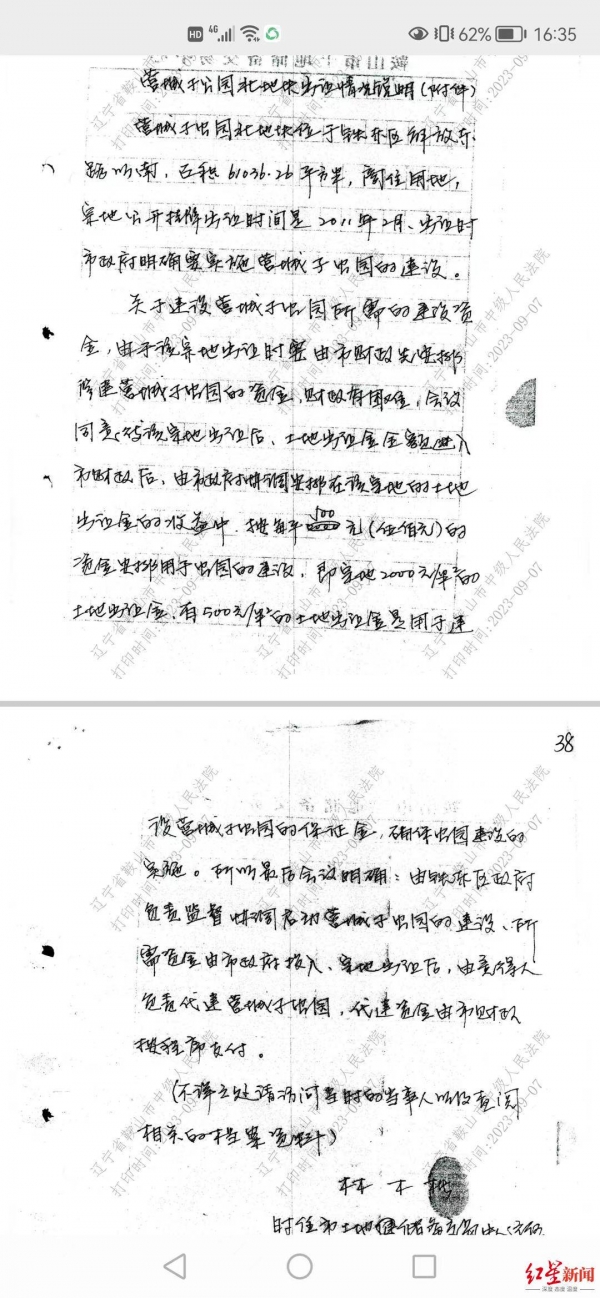 HD 4G 62% 16:35
营城子公园北地块出让情况说明(附件)
营城子公园北地块位于铁东区解放东
路以南,面积61036.26平方米,商住用地,
宗地公开挂牌出让时间是2011年2月、出让时
市政府明确要实施营城子公园的建设。
关于建设营城子公园所需的建设资
金,由于该宗地出让时要由市财政先安排
营城子公园的资金,财政有困难,会议
同意:待该宗地出让后,土地出让金全额进入
市财政后,由市政府协调安排在该宗地的土地
出让金的收益中,按每平500元(伍佰元)的
资金安排用于公园的建设,即宗地2000元/米²的
土地出让金,有500元/米²的土地出让金是用于建
38
设营城子公园的保证金,确保公园建设的
实施。所以最后会议明确:由铁东区政府
负责监督协调启动营城子公园的建设、所
需资金由市政府投入、宗地出让后,由竞得人
负责代建营城子公园,代建资金由市财政
按程序支付。
(不详之处请访问当时的当事人以及查阅
相关的档案资料)
林木
时任市土地储备交易中心
辽宁省鞍山市中级人民法院
打印时间:2023-09-07
红星新闻
深度 态度 温度